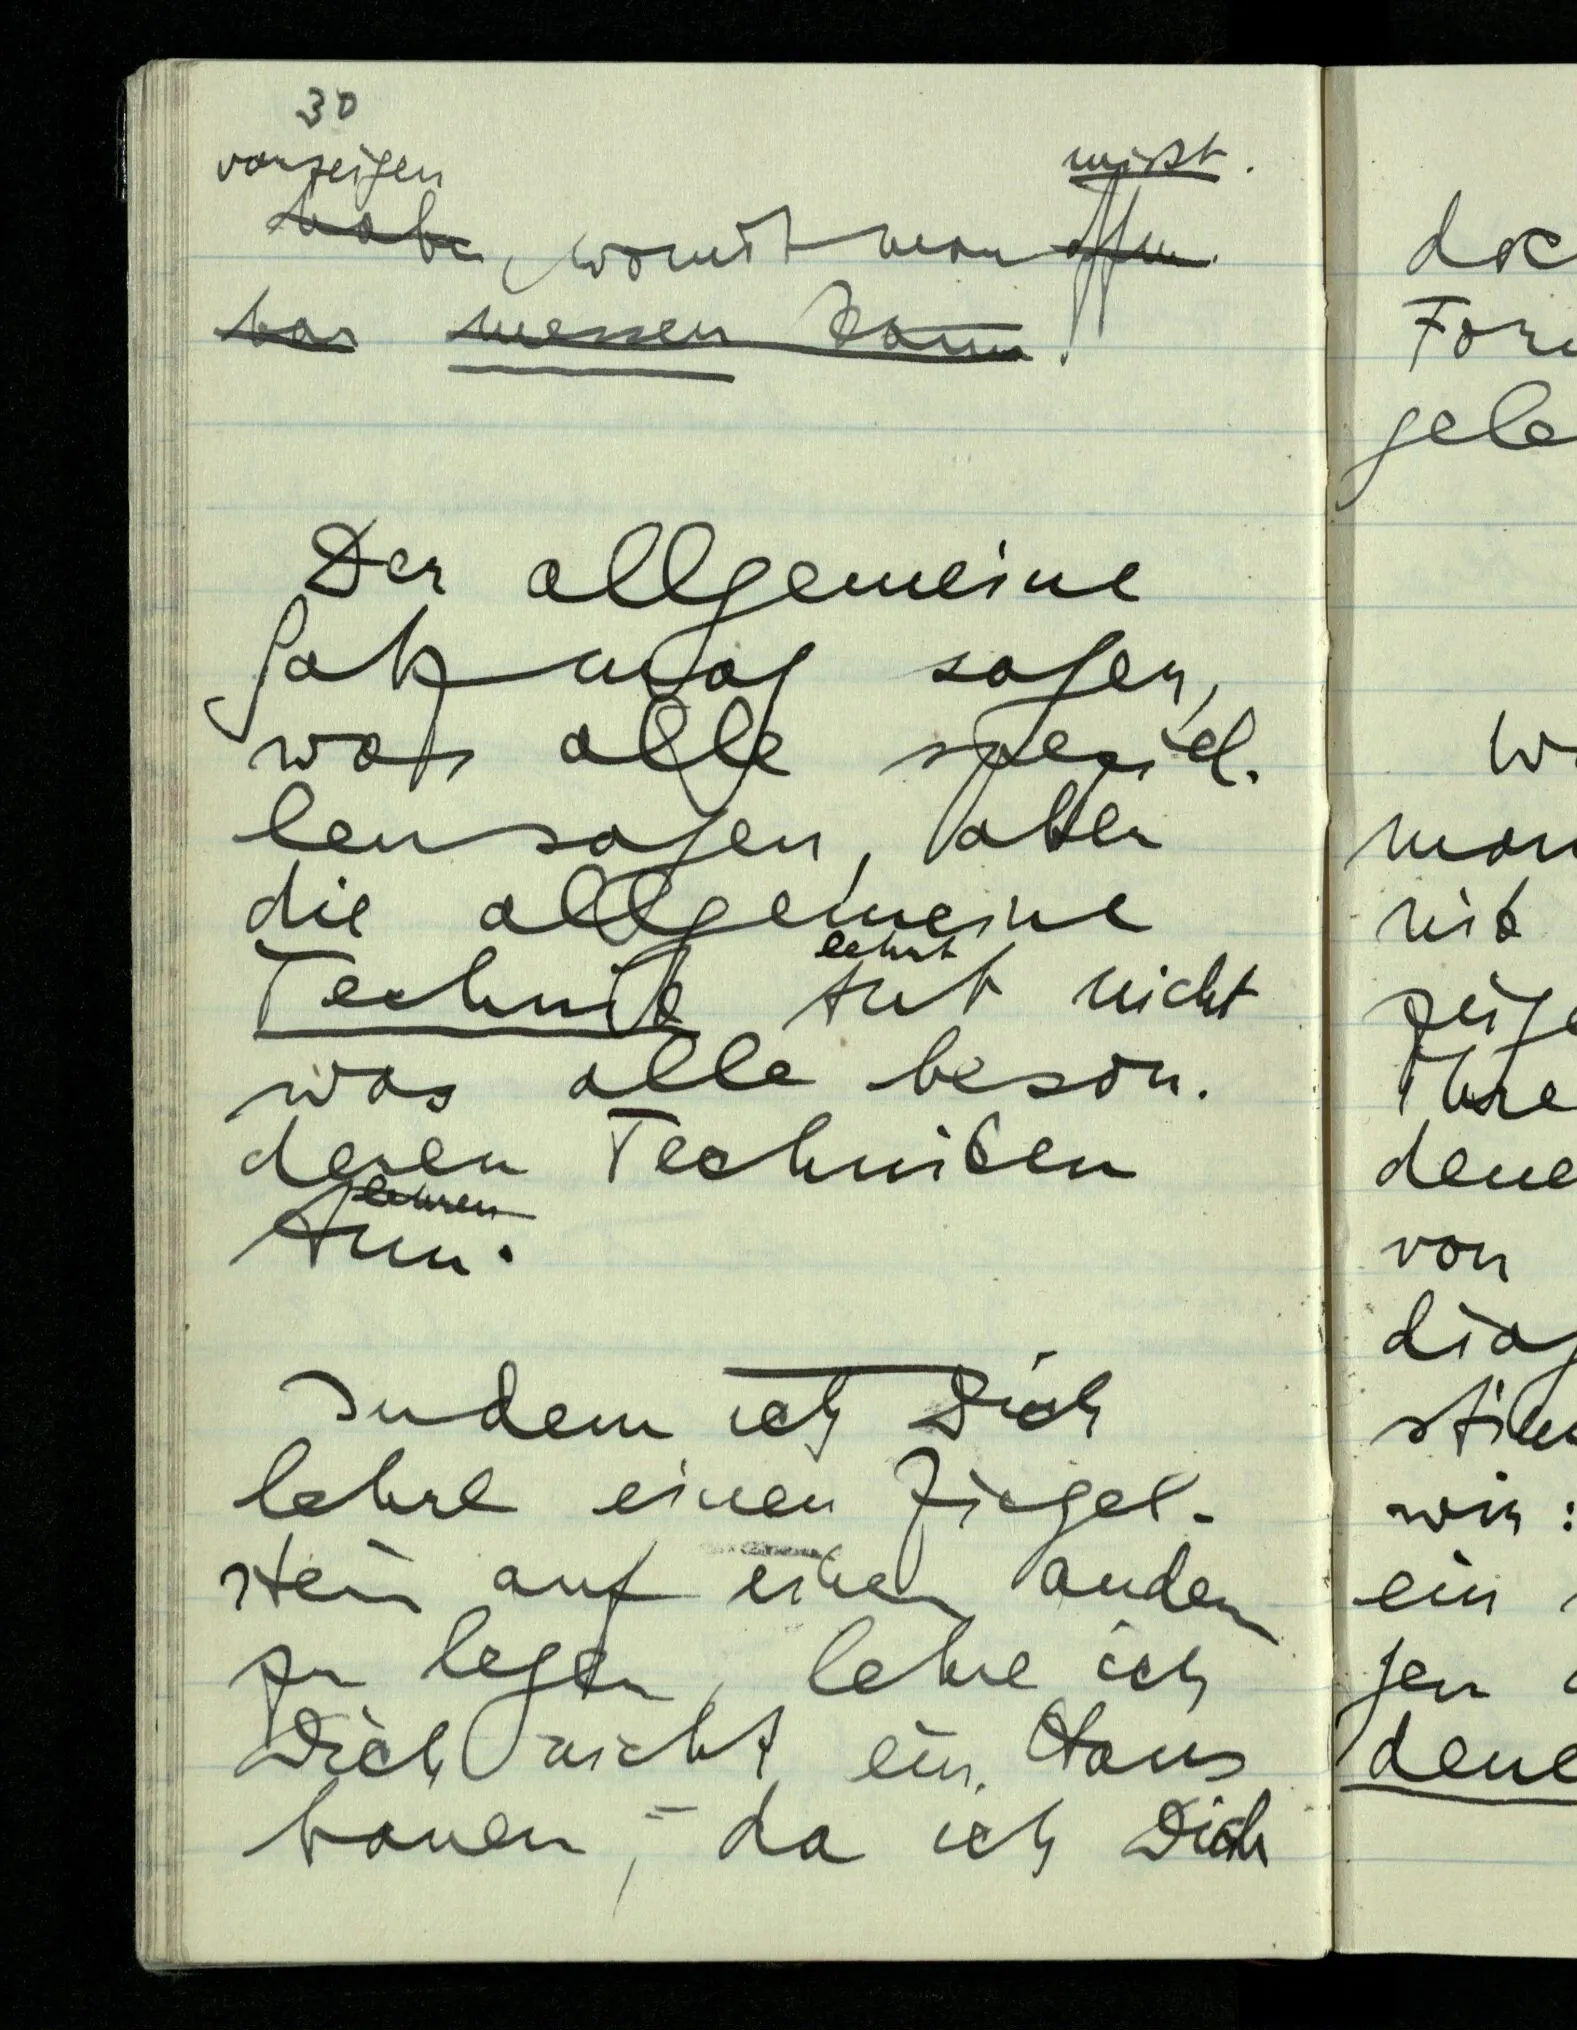 30
vorzeigen
mißt.
habe, womit man offen
bar messen kann!
Der allgemeine
Satz mag sagen,
was alle speziel-
len sagen, aber
die allgemeine
lehrt
Technik tut nicht
was alle beson-
deren Techniken
lehren
tun.
Indem ich Dich
lehre einen Ziegel-
stein auf einen andern
zu legen, lehre ich
Dich nicht ein Haus
bauen, – da ich Dich
dene
von
wir:
ein
gen
dene